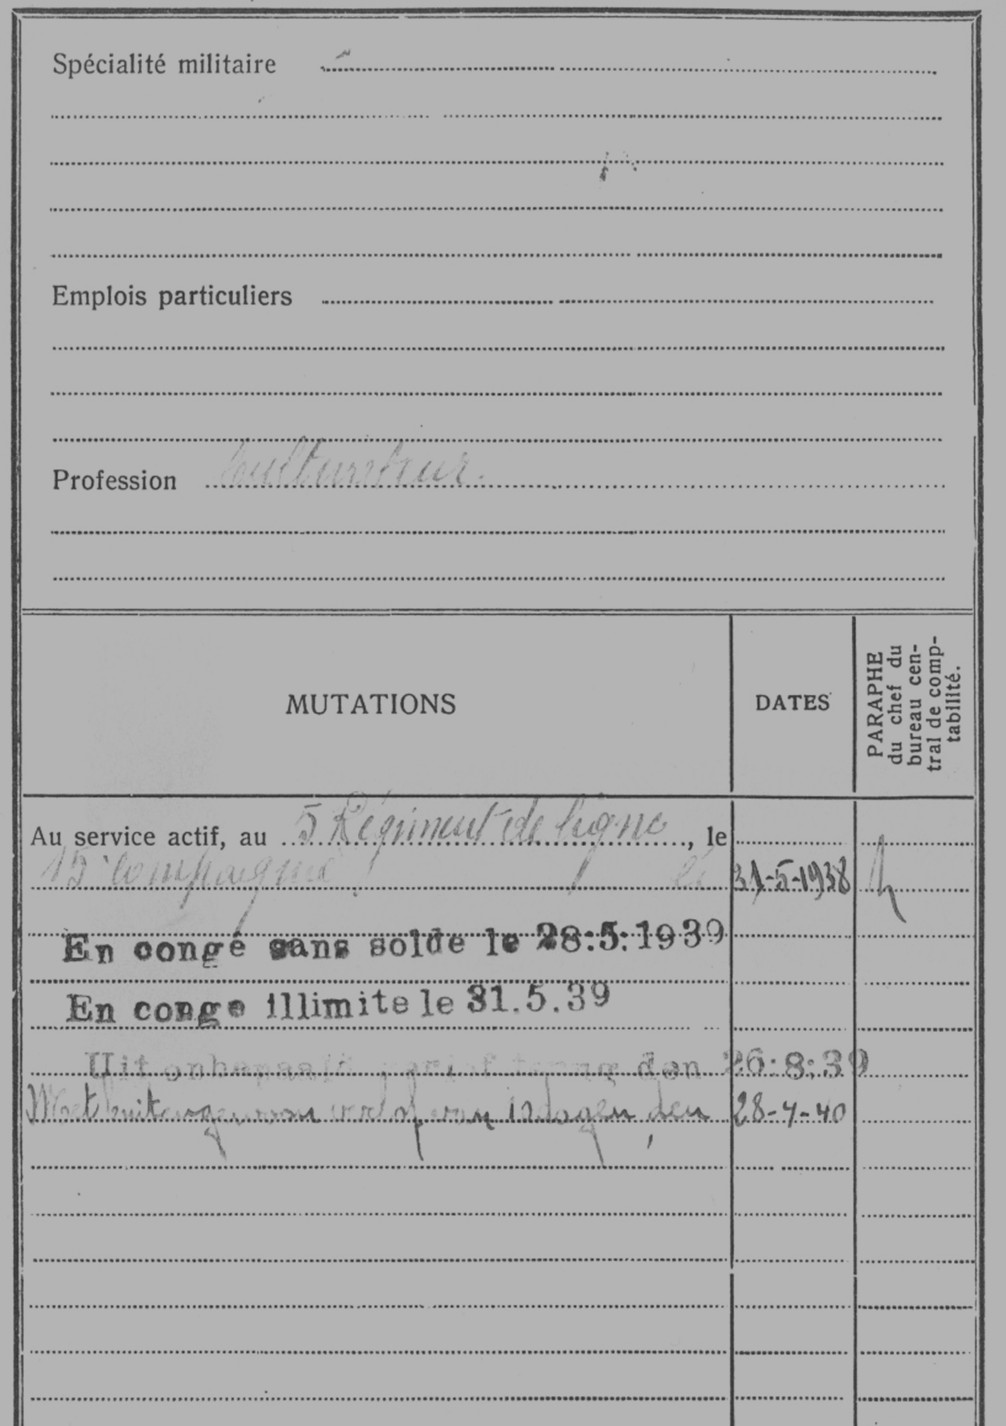 Spécialité militaire
Emplois particuliers
Profession Cultivateur.
MUTATIONS
DATES
PARAPHE
du chef du
bureau cen-
tral de comp-
tabilité.
Au service actif, au 5 Régiment de ligne, le
15e compagnie le 31-5-1938
En congé sans solde le 28:5:1939
En conge illimite le 31.5.39
Uit onbepaald verlof terug den 26:8:39
Met buitengewoon verlof van dagen, den 28-4-40